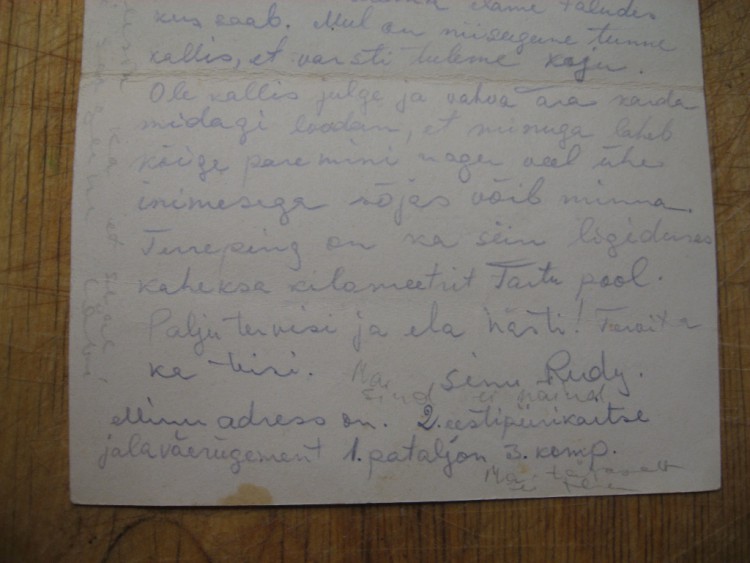 elame taludes
kus saab. Mul on niisugune tunne
kallis, et varsti tuleme koju.
Ole kallis julge ja vahva ära karda
midagi loodan, et minuga läheb
kõige paremini nagu veel ühe
inimesega sõjas võib minna.
on ka siin ligiduses
kaheksa kilomeetrit Tartu pool.
Palju tervisi ja ela hästi! Tervita
ka teisi. Ma Sinu Rudy.
sind ei
Minu adress on. 2. eesti piirikaitse
jalaväerügement 1. pataljon 3. komp.
Ma